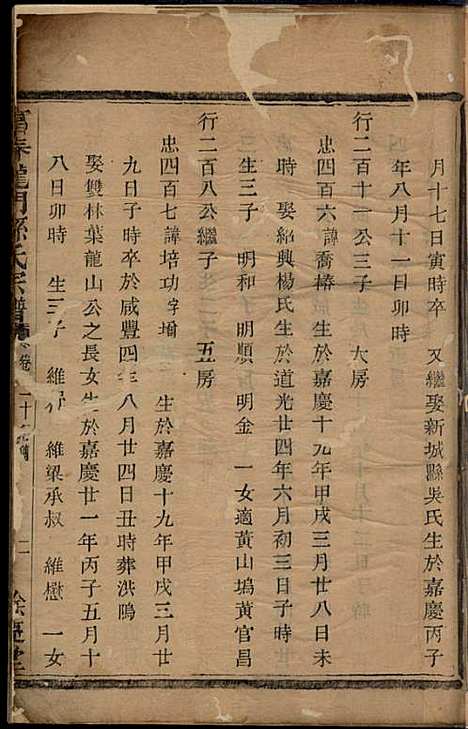 月十七日寅時卒　又繼娶新城縣吳氏生於嘉慶丙子
年八月十一日卯時
行二百十一公三子　大房
忠四百六諱喬椿　生於嘉慶十九年甲戌三月廿八日未
時　娶紹興楊氏生於道光廿四年六月初三日子時廿
生三子　明和子明順子明金　一女適黃山塢黃官昌
行二百八公繼子　五房
忠四百七諱培功字堉　生於嘉慶十九年甲戌三月廿
九日子時卒於咸豐四年八月廿四日丑時葬洪鳴
娶雙林葉龍山公之長女生於嘉慶廿一年丙子五月十
八日卯時　生三子　維　維梁承叔　維懋　一女
富春龍門孫氏宗譜　卷　二十　餘慶堂